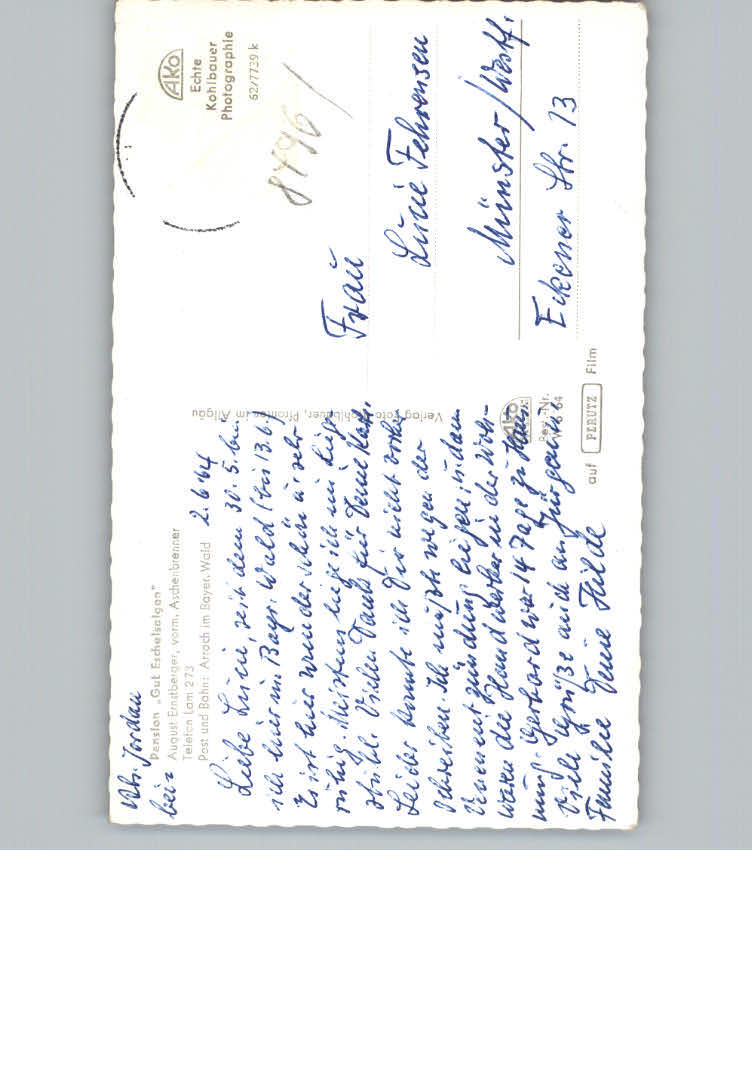 Abs. Jordan
bei:
Pension „Gut Eschelsaign"
August Ernstberger, vorm. Aschenbrenner
Telefon Lam 273
Post und Bahn: Arrach im Bayer. Wald
2.6.64
Liebe Lucie, seit dem 30.5. bin
ich hier im Bayr. Wald (bis 13.6.)
Es ist hier wunderschön u. sehr
ruhig. Meistens liege ich im Liege-
stuhl. Vielen Dank für Deine Karte.
Leider konnte ich Dir nicht vorher
schreiben. Ich mußte wegen der
Venenentzündung liegen u. dann
waren die Handwerker in der Woh-
nung. Gerhard war 14 Tage zu Haus.
Viele Grüße auch an Jürgens
Familie Deine Hilde
Verlag Foto Kohlbauer, Pfronten im Allgäu
AKO
Echte
Kohlbauer
Photographie
62/7739 k
8496/
Frau
Lucie Fehrensen
Münster/Westf.
Eckener Str. 13
AKO
auf PERUTZ Film